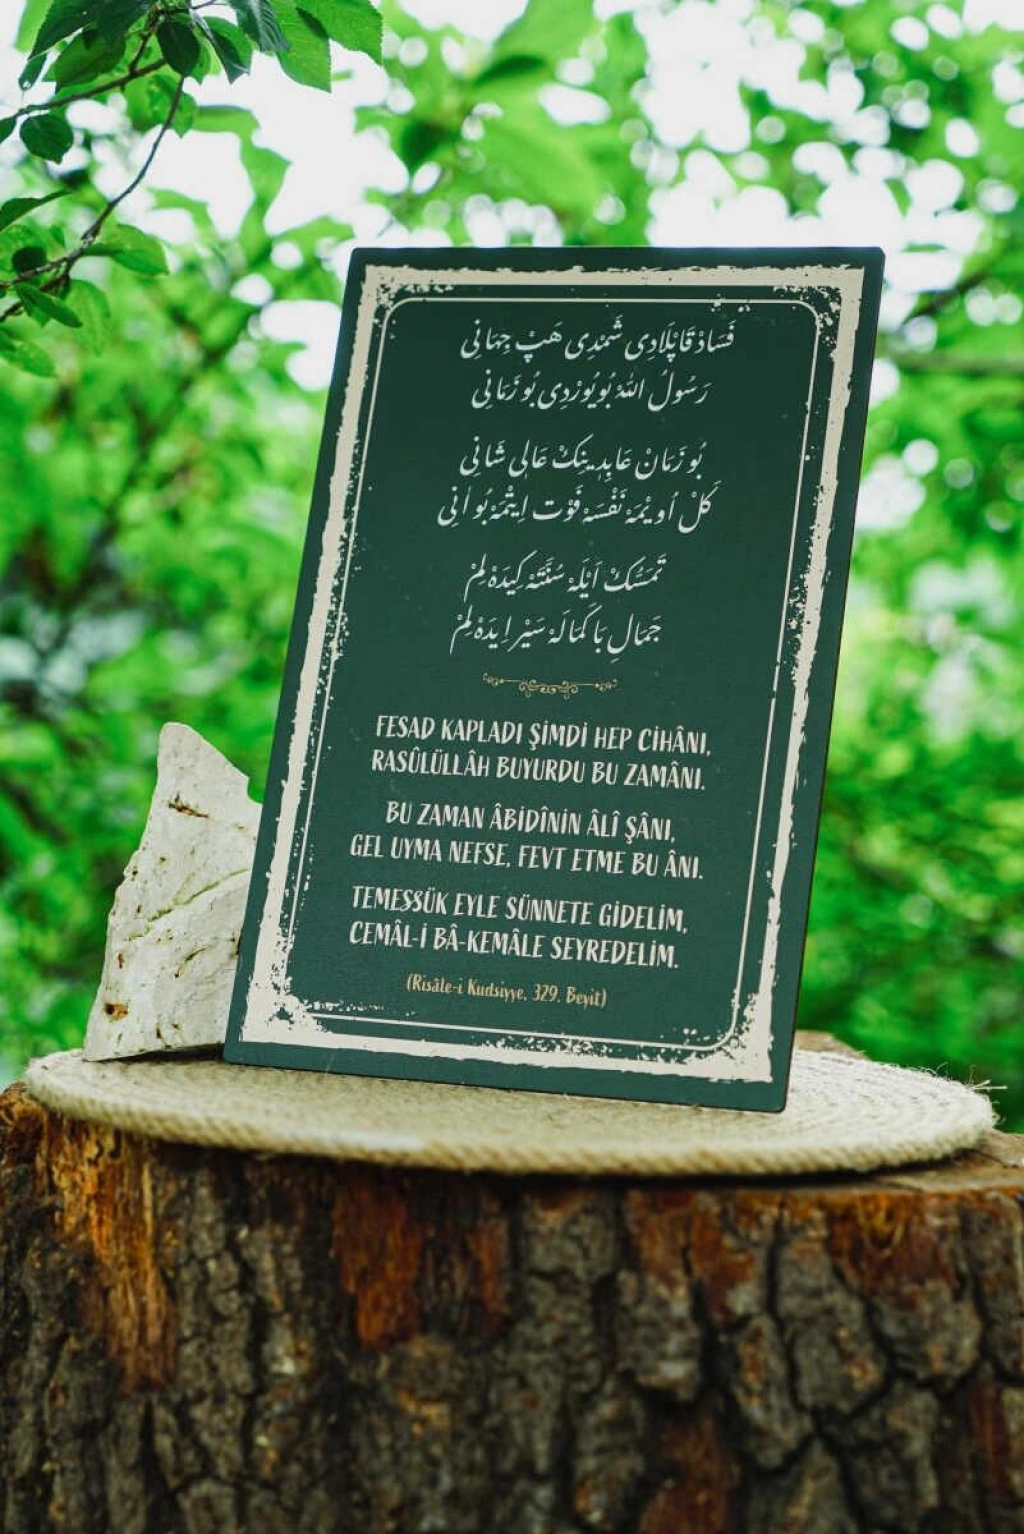 فَسَادْ قَاپْلَادِى شَمْدِى هَپْ جِهَانِى
رَسُولُ اللّٰهْ بُويُورْدِى بُو زَمَانِى
بُو زَمَانْ عَابِدِينِكْ عَالِى شَانِى
كَلْ اُويْمَهْ نَفْسَهْ فَوْت اِيتْمَهْ بُو اٰنِى
تَمَسُّكْ اَيْلَهْ سُنَّتَهْ كِيدَهْ لِمْ
جَمَالِ بَا كَمَالَهْ سَيْر اِيدَهْ لِمْ
FESAD KAPLADI ŞİMDİ HEP CİHÂNI,
RASÛLÜLLÂH BUYURDU BU ZAMÂNI.
BU ZAMAN ÂBİDÎNİN ÂLÎ ŞÂNI,
GEL UYMA NEFSE, FEVT ETME BU ÂNI.
TEMESSÜK EYLE SÜNNETE GİDELİM,
CEMÂL-İ BÂ-KEMÂLE SEYREDELİM.
(Risâle-i Kudsiyye, 329. Beyit)